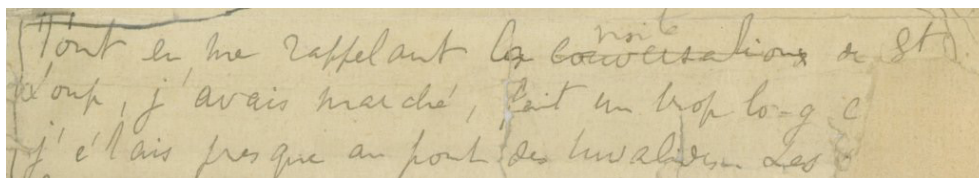 Tout en me rappelant la visite de St
Loup, j'avais marché, fait un trop long c
j'étais presque au pont des Invalides. Les